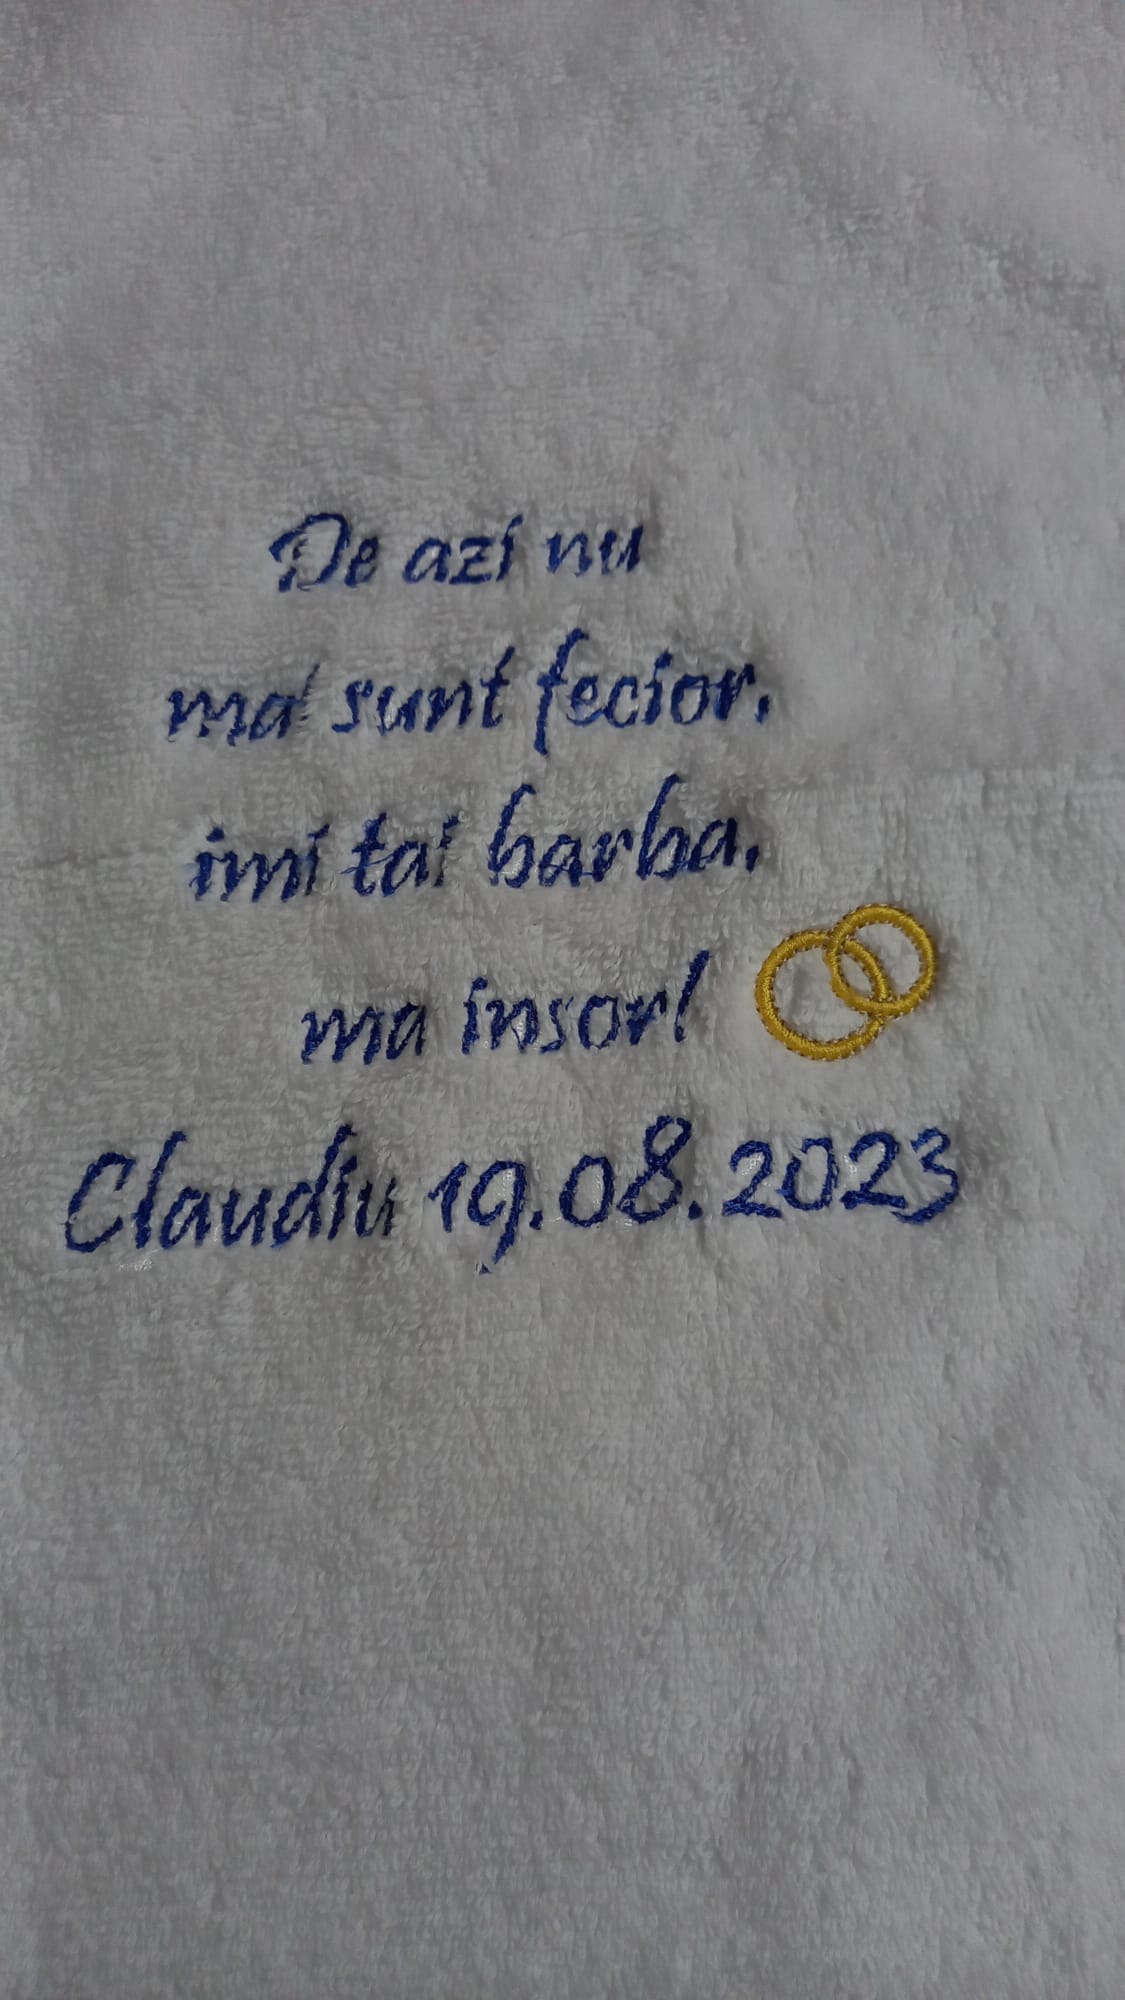 De azi nu
mai sunt fecior,
imi tai barba,
ma insor!
Claudiu 19.08.2023